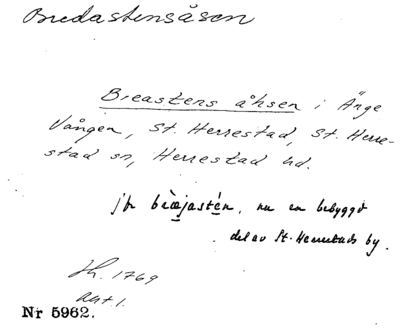 Bredastensåsen
Breastens åhsen i Änge
Vången, St. Herrestad, St. Herre-
stad sn, Herrestad hd.
jfr brèæjastén, nu en bebyggd
del av St. Herrestads by.
Jh. 1769
akt 1.
Nr 5962.